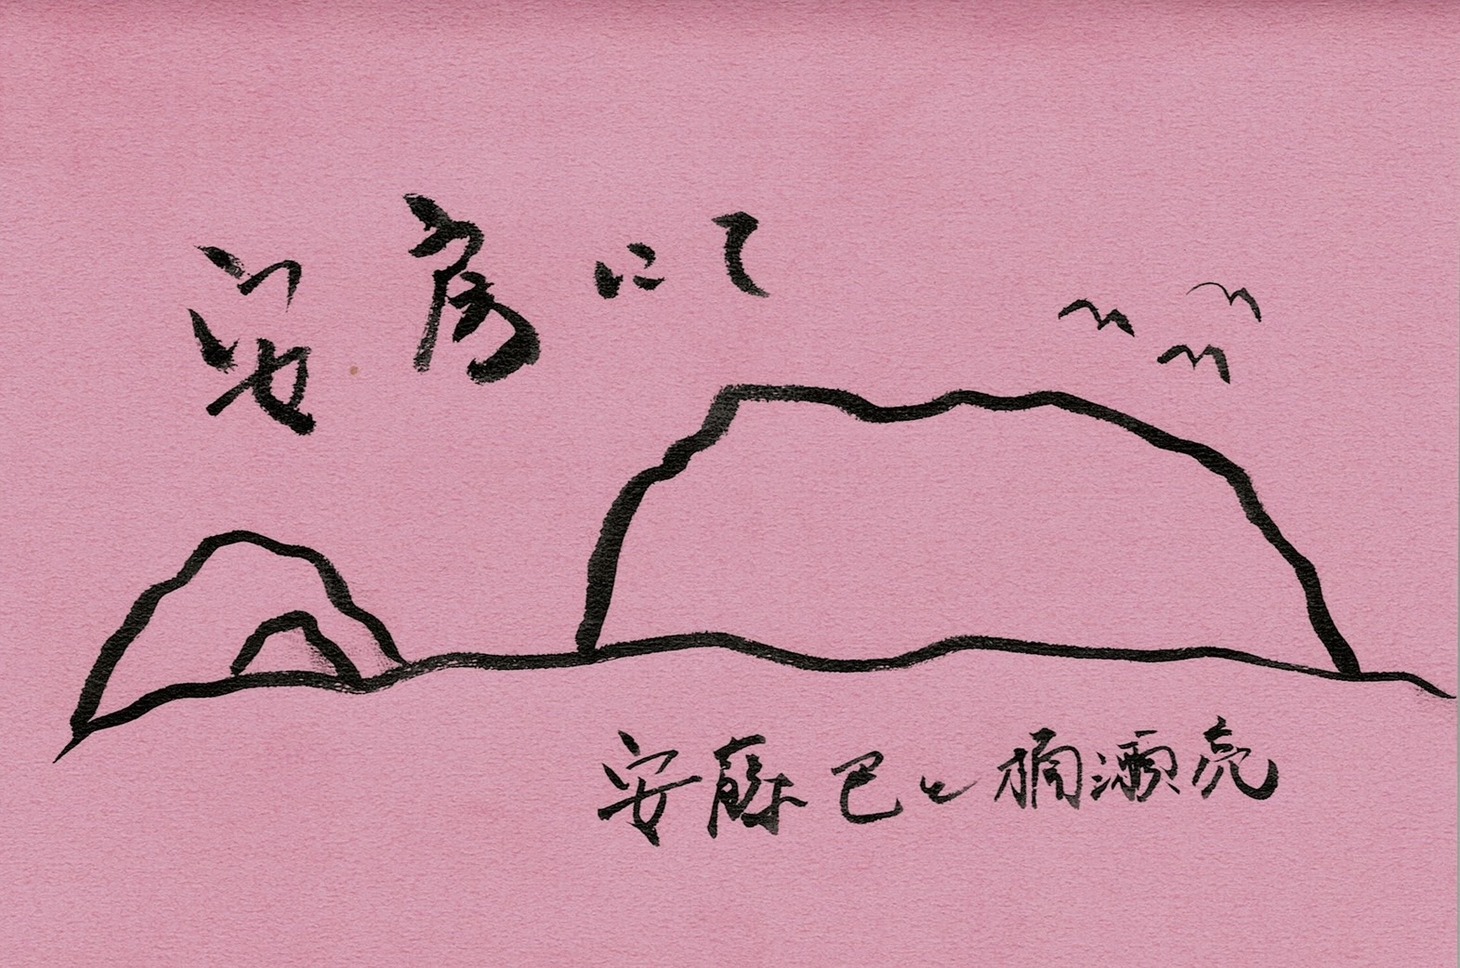 安房にて
安藤巳と楠瀬亮